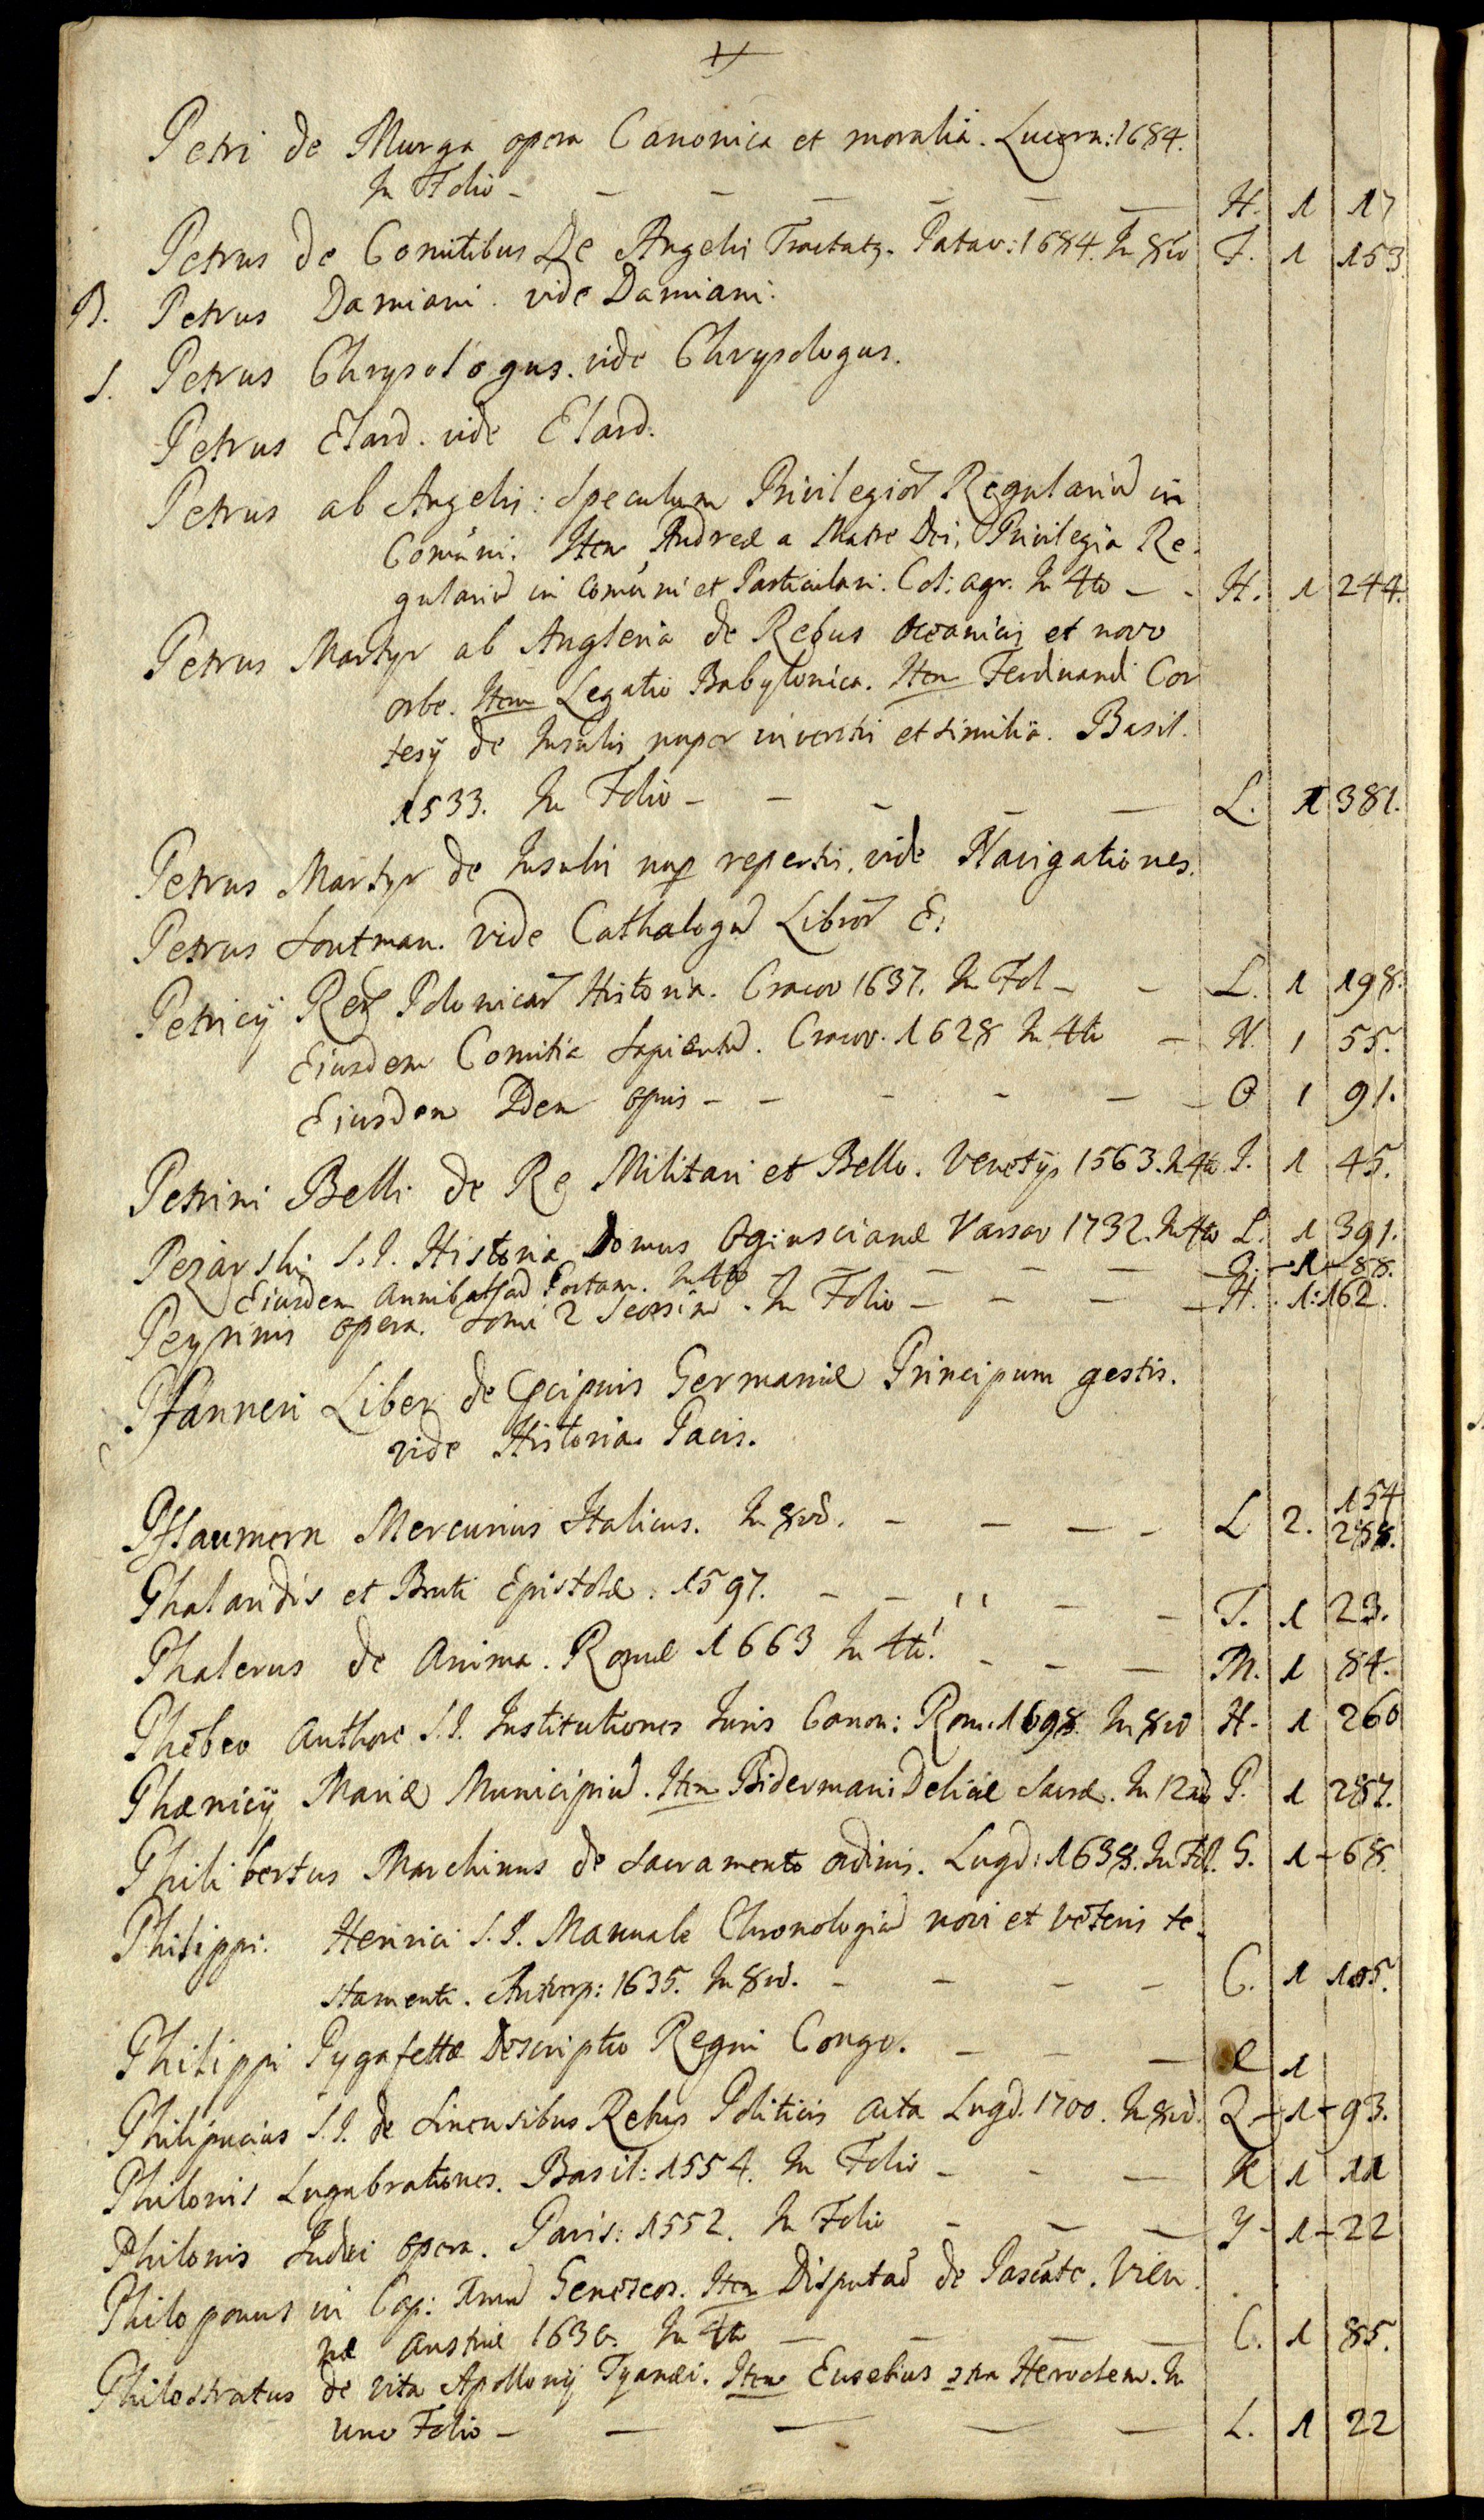 Petri de Murga opera Canonica et moralia. Lucern: 1684.
In Folio - - - - - - H. 1 17
Petrus de Comitibus De Angelis Tractatq. Patav: 1684. In 8vo F. 1 153.
B. Petrus Damiani. vide Damiani.
S. Petrus Chrysologus. vide Chrysologus.
Petrus Elard. vide Elard.
Petrus ab Angelis: Speculum Privilegior Regulariũ in
Comuni. Item Andreæ a Matre Dei, Privilegia Re-
gulariũ in Comuni et Particulari. Col: agr. In 4to - - H. 1 244.
Petrus Martyr ab Angleria de Rebus Oceanicis et novo
orbe. Item Legatio Babylonica. Item Ferdinandi Cor
tesÿ de Insulis nuper inventis et similia. Basil.
1533. In Folio - - - - - L. 1 381.
Petrus Martyr de Insulis nup repertis. vide Navigationes.
Petrus Soutman. vide Cathalogũ Libror E:
Petricÿ Rer Polonicar Historia. Cracov 1637. In Fol - - L. 1 198.
Eiusdem Comitia Sapientũ. Cracov. 1628 In 4to - N. 1 55.
Eiusdem Idem opus - - - - - - O 1 91.
Petrini Belli de Re Militari et Bello. Venetÿs 1563. In 4to I. 1 45.
Pezarski S. I. Historia Domus Oginscianæ Varsav 1732. In 4to L. 1 391.
Eiusdem Annibal ad Portam. In 4to - - - - - O. - 1 - 88.
Peyrinis opera. Tomi 2 Seorsim. In Folio - - - - H. 1: 162.
Pfanneri Liber de Præcipuis Germaniæ Principum gestis.
vide Historia Pacis.
Pflaumern Mercurius Italicus. In 8vo. - - - - L 2. 154
288.
Phalaridis et Bruti Epistolæ. 1597. - - - - - T. 1 23.
Phalerus de Anima. Romæ 1663 In 4to. - - - M. 1 84.
Phebeo Authore S. I. Institutiones Iuris Canon: Rom. 1698. In 8vo H. 1 260
Phænicÿ Mariæ Municipiũ. Item Bidermani Deliciæ Sacræ. In 12mo P. 1 287.
Philibertus Marchinus de Sacramento ordinis. Lugd: 1638. In Fol. G. 1 - 68.
Philippi Henrici S. I. Manuale Chronologicũ novi et Veteris te-
stamenti. Antverp: 1635. In 8vo. - - - - C. 1 105.
Philippi Pygafettæ Descriptio Regni Congo. - - - e 1
Philipucius S. I. de Sinensibus Rebus Politicis acta Lugd. 1700. In 8vo. Q - 1 - 93.
Philonis Lugubrationes. Basil: 1554. In Folio - - - K 1 11
Philonis Judæi opera. Paris: 1552. In Folio - - - Y - 1 - 22
Philoponus in Cap: Imũ Geneseos. Item Disputaõ de Pascate. Vien
næ Austriæ 1630. In 4to - - - - C. 1 85.
Philostratus de Vita Apollonÿ Tyanæi. Item Eusebius 2tra Heroclem. In
uno Folio - - - - - L. 1 22